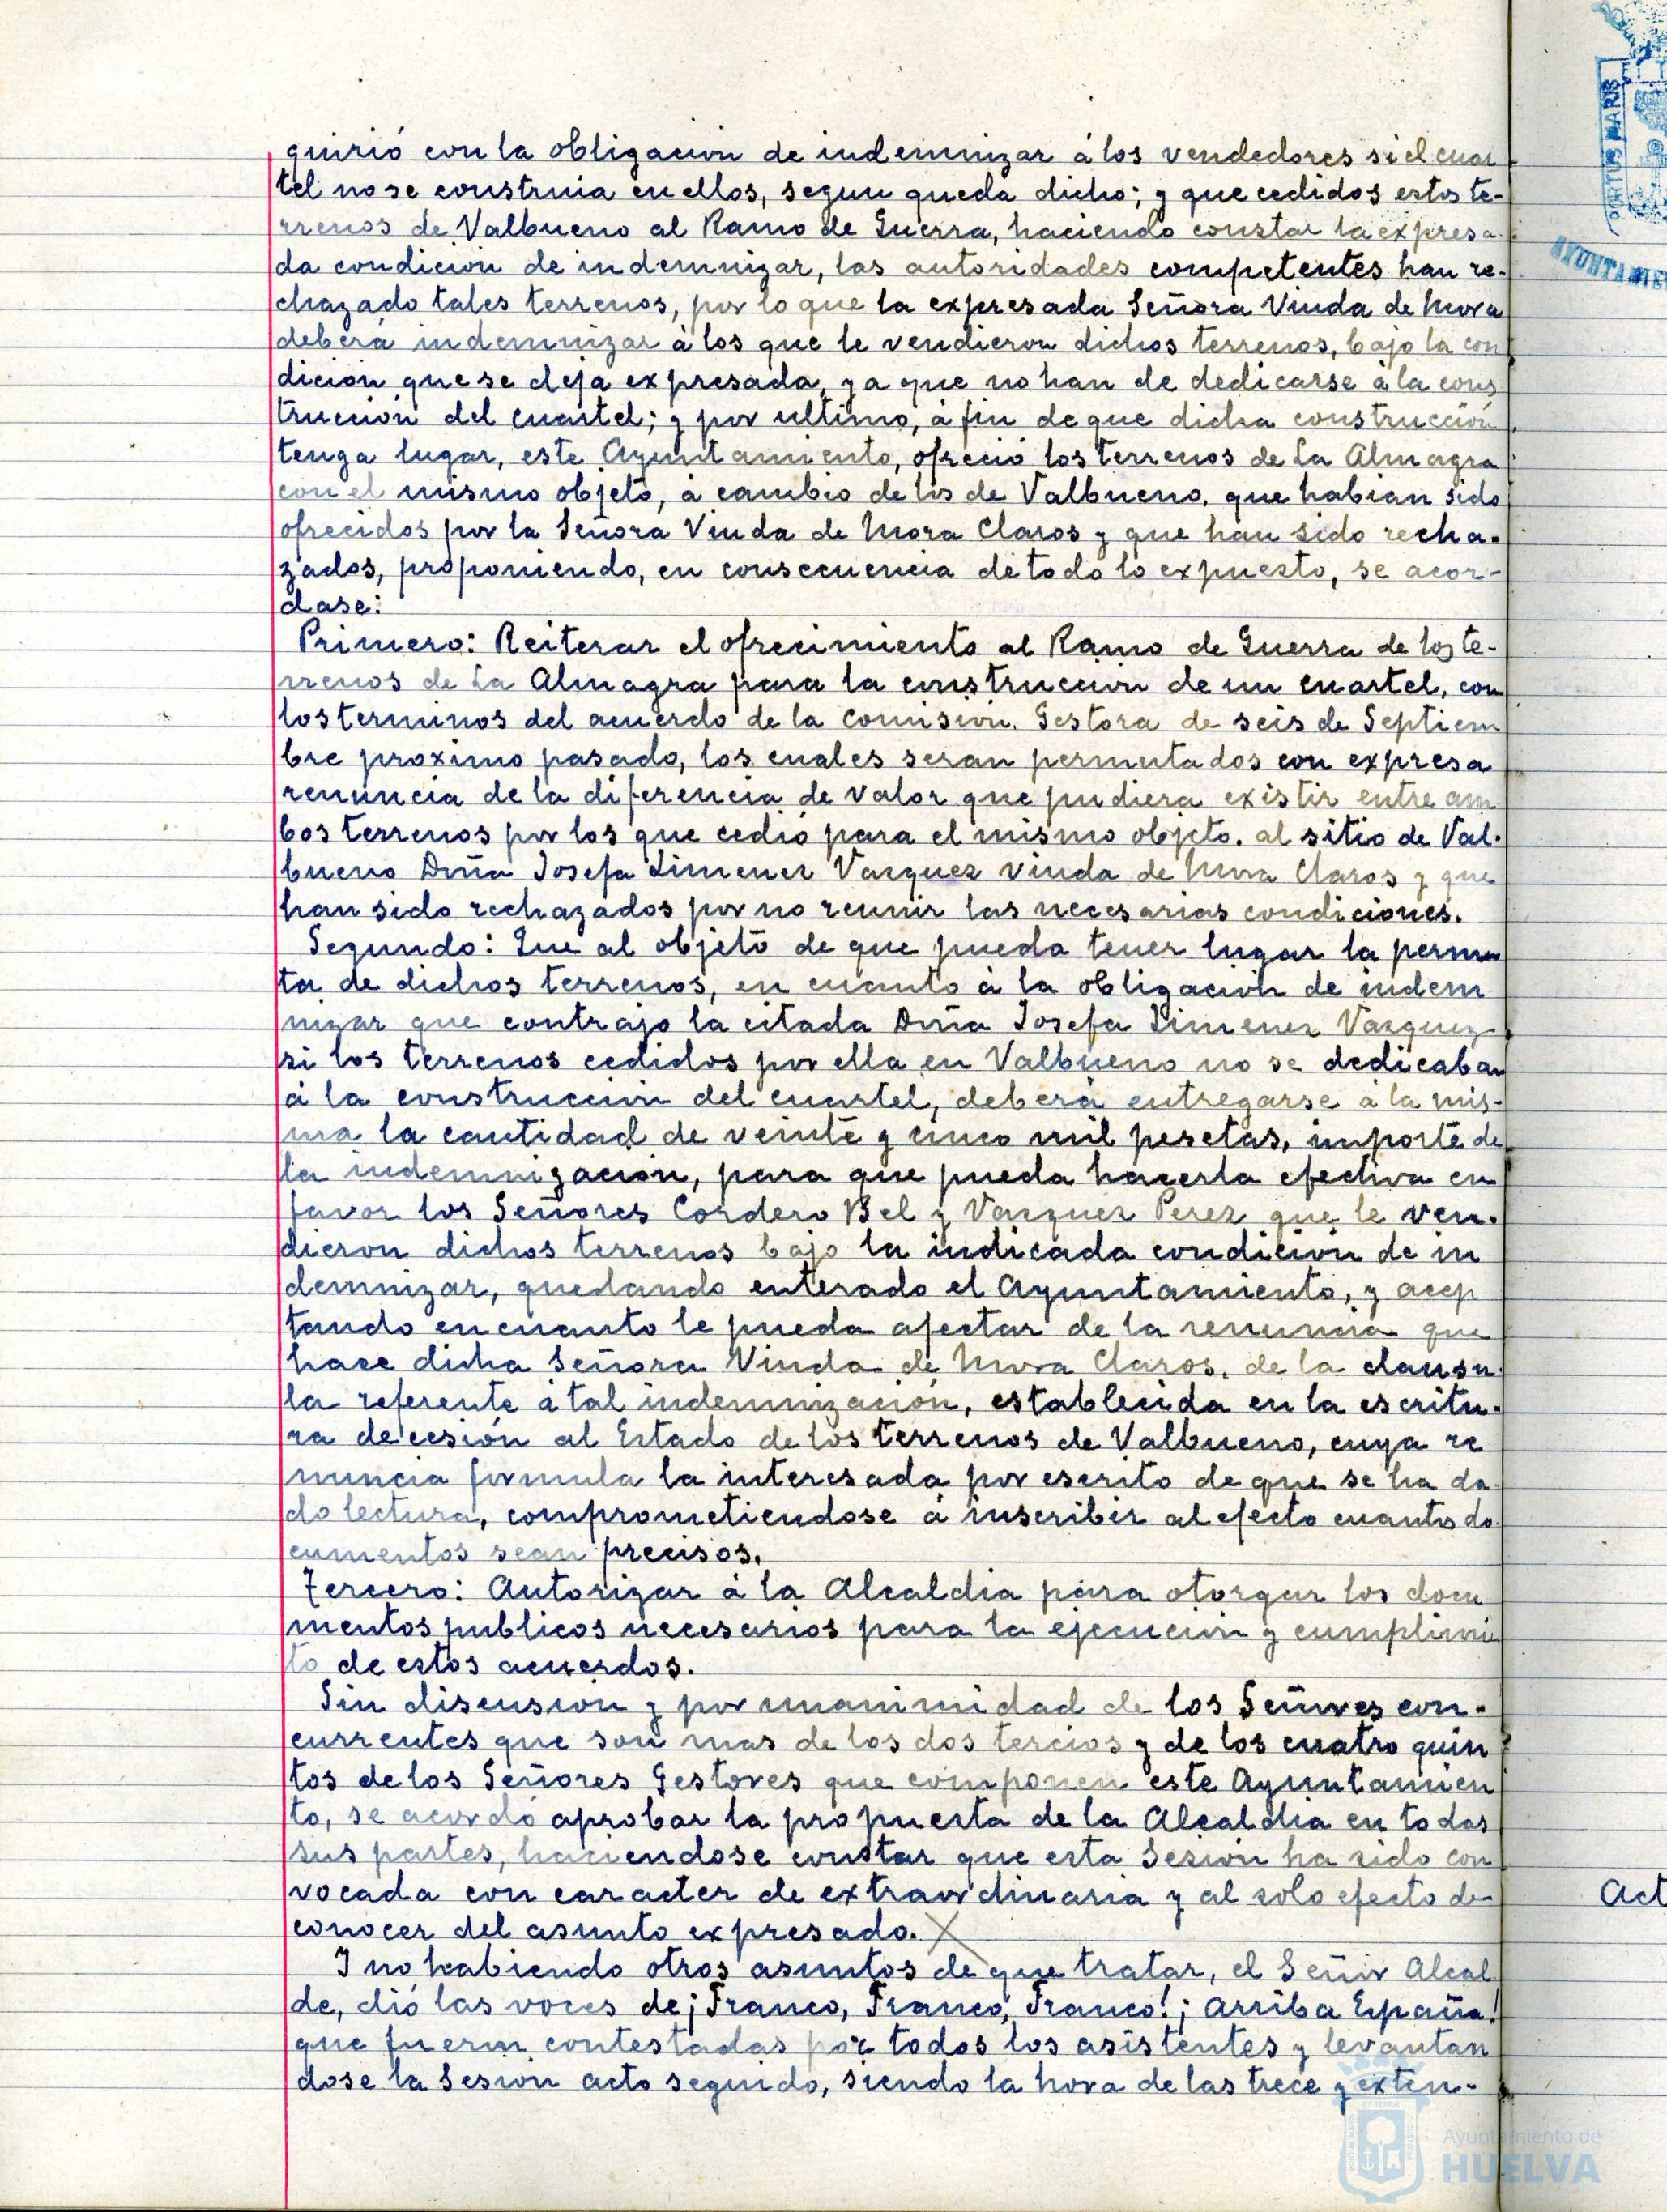 quirió con la obligacion de indemnizar á los vendedores si el cuar
tel no se construia en ellos, segun queda dicho; y que cedidos estos te-
rrenos de Valbueno al Ramo de Guerra, haciendo constar la expresa-
da condicion de indemnizar, las autoridades competentes han re-
chazado tales terrenos, por lo que la expresada Señora Viuda de Mora
deberá indemnizar à los que le vendieron dichos terrenos, bajo la con
dicion que se deja expresada, ya que no han de dedicarse à la cons
trucción del cuartel; y por ultimo, à fin de que dicha construcción
tenga lugar, este Ayuntamiento, ofreció los terrenos de La Almagra
con el mismo objeto, à cambio de los de Valbueno, que habian sido
ofrecidos por la Señora Viuda de Mora Claros y que han sido recha-
zados, proponiendo, en consecuencia de todo lo expuesto, se acor-
dase:
Primero: Reiterar el ofrecimiento al Ramo de Guerra de los te-
rrenos de La Almagra para la construccion de un cuartel, con
los terminos del acuerdo de la Comision Gestora de seis de Septiem
bre proximo pasado, los cuales seran permutados con expresa
renuncia de la diferencia de valor que pudiera existir entre am
bos terrenos por los que cedió para el mismo objeto. al sitio de Val-
bueno Dña Josefa Jimenez Vazquez viuda de Mora Claros y que
han sido rechazados por no reunir las necesarias condiciones.
Segundo: Que al objeto de que pueda tener lugar la permu
ta de dichos terrenos, en cuanto à la obligación de indem
nizar que contrajo la citada Dña Josefa Jimenez Vazquez
si los terrenos cedidos por ella en Valbueno no se dedicaban
á la construccion del cuartel, deberá entregarse à la mis-
ma la cantidad de veinte y cinco mil pesetas, importe de
la indemnizacion, para que pueda hacerla efectiva en
favor los Señores Cordero Bel y Vazquez Perez que le ven-
dieron dichos terrenos bajo la indicada condición de in
demnizar, quedando enterado el Ayuntamiento, y acep
tando en cuanto le pueda afectar de la renuncia que
hace dicha Señora Viuda de Mora Claros, de la clausu-
la referente á tal indemnización, establecida en la escritu-
ra de cesión al Estado de los terrenos de Valbueno, cuya re
nuncia formula la interesada por escrito de que se ha da-
do lectura, comprometiendose á inscribir al efecto cuantos do
cumentos sean precisos.
Tercero: Autorizar á la Alcaldia para otorgar los docu
mentos publicos necesarios para la ejecucion y cumplimi
to de estos acuerdos.
Sin discusión y por unanimidad de los Señores con-
currentes que son mas de los dos tercios y de los cuatro quin
tos de los Señores Gestores que componen este Ayuntamien
to, se acordó aprobar la propuesta de la Alcaldia en todas
sus partes, haciendose constar que esta Sesión ha sido con
vocada con caracter de extraordinaria y al solo efecto de
conocer del asunto expresado.
Y no habiendo otros asuntos de que tratar, el Señor Alcal
de, dió las voces de ¡Franco, Franco, Franco! ¡Arriba España!
que fueron contestadas por todos los asistentes y levantan
dose la Sesión acto seguido, siendo la hora de las trece y exten-
PORTUS MARIS
AYUNTAMIE
Act
Ayuntamiento de
HUELVA